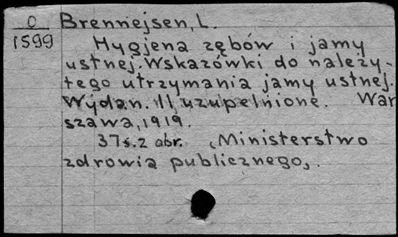 C
1599
Brennejsen, L.
Hygjena zębów i jamy
ustnej. Wskazówki do należy-
tego utrzymania jamy ustnej.
Wydan. II, uzupełnione. War
szawa, 1919.
37 s. z abr. "Ministerstwo
zdrowia publicznego".